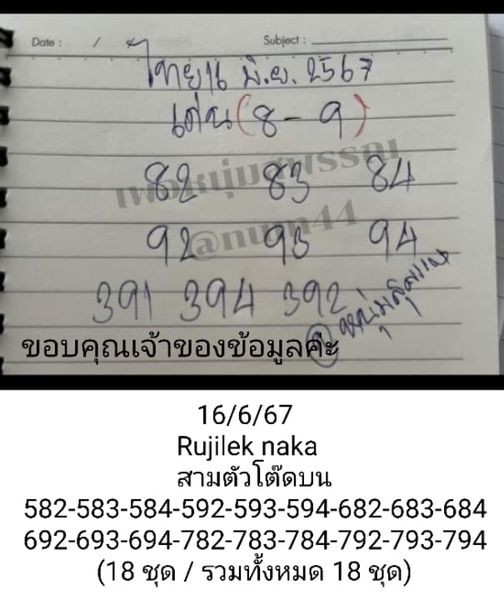 Date : / Subject :
ไทย 16 มิ.ย. 2567
เด่น (8 - 9)
82 83 84
92 93 94
391 394 392
หนุ่มสุพรรณ
@num44
ขอบคุณเจ้าของข้อมูลค่ะ
16/6/67
Rujilek naka
สามตัวโต๊ดบน
582-583-584-592-593-594-682-683-684
692-693-694-782-783-784-792-793-794
(18 ชุด / รวมทั้งหมด 18 ชุด)